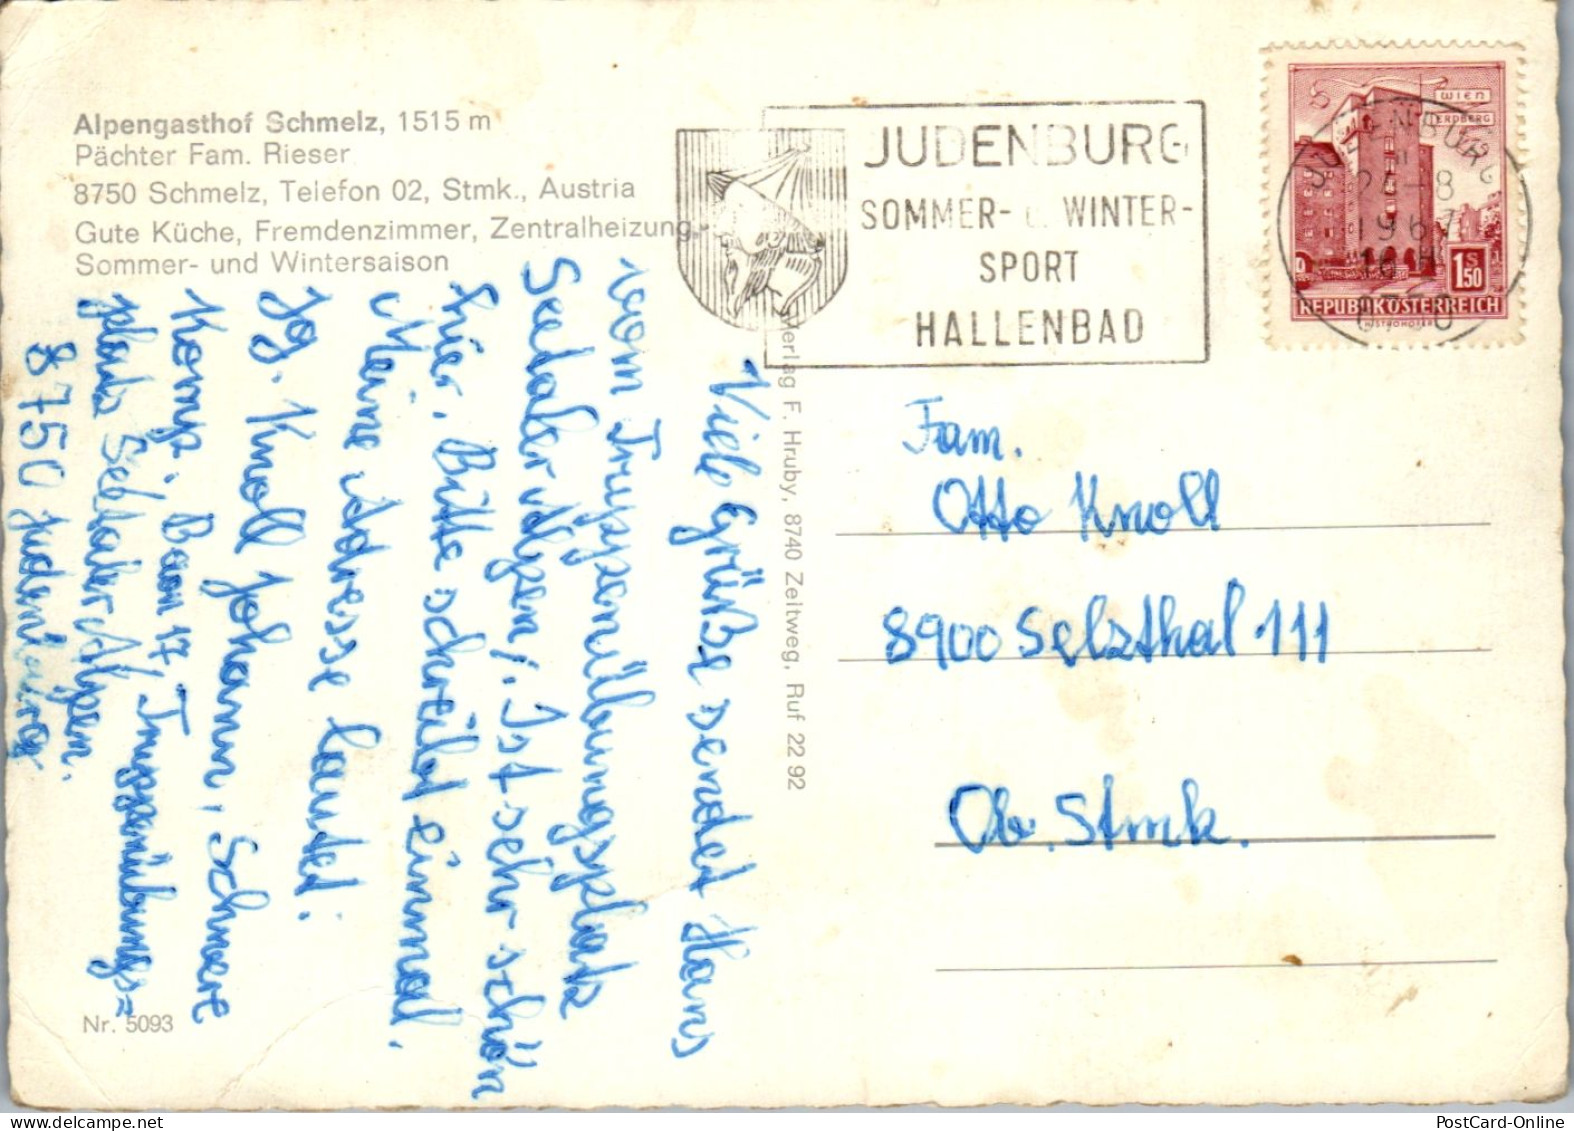 Alpengasthof Schmelz, 1515 m
Pächter Fam. Rieser
8750 Schmelz, Telefon 02, Stmk., Austria
Gute Küche, Fremdenzimmer, Zentralheizung,
Sommer- und Wintersaison
JUDENBURG
SOMMER- U. WINTER-
SPORT
HALLENBAD
JUDENBURG
24-8
1967
WIEN
ERDBERG
1 S 50
REPUBLIK ÖSTERREICH
Viele Grüße sendet Hans
vom Truppenübungsplatz
Seetaler Alpen. Ist sehr schön
hier. Bitte schreibt einmal.
Meine Adresse lautet:
Jg. Knoll Johann, Schwere
Komp. Baon 17, Truppenübungs=
platz Seetaler Alpen.
8750 Judenburg
Verlag F. Hruby, 8740 Zeltweg, Ruf 22 92
Fam.
Otto Knoll
8900 Selzthal 111
Ob. Stmk.
Nr. 5093
PostCard-Online